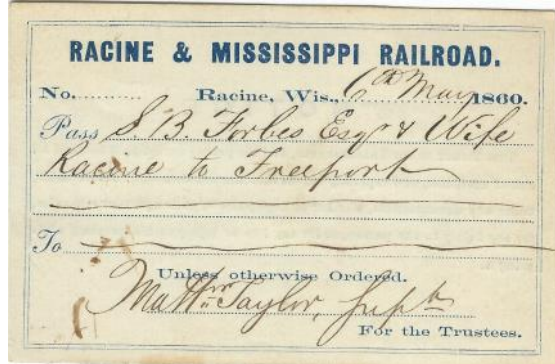 RACINE & MISSISSIPPI RAILROAD.
No. Racine, Wis., 6th May 1860.
Pass S. B. Forbes Esqr & Wife
Racine to Freeport
To
Unless otherwise Ordered.
Taylor, Supt
For the Trustees.